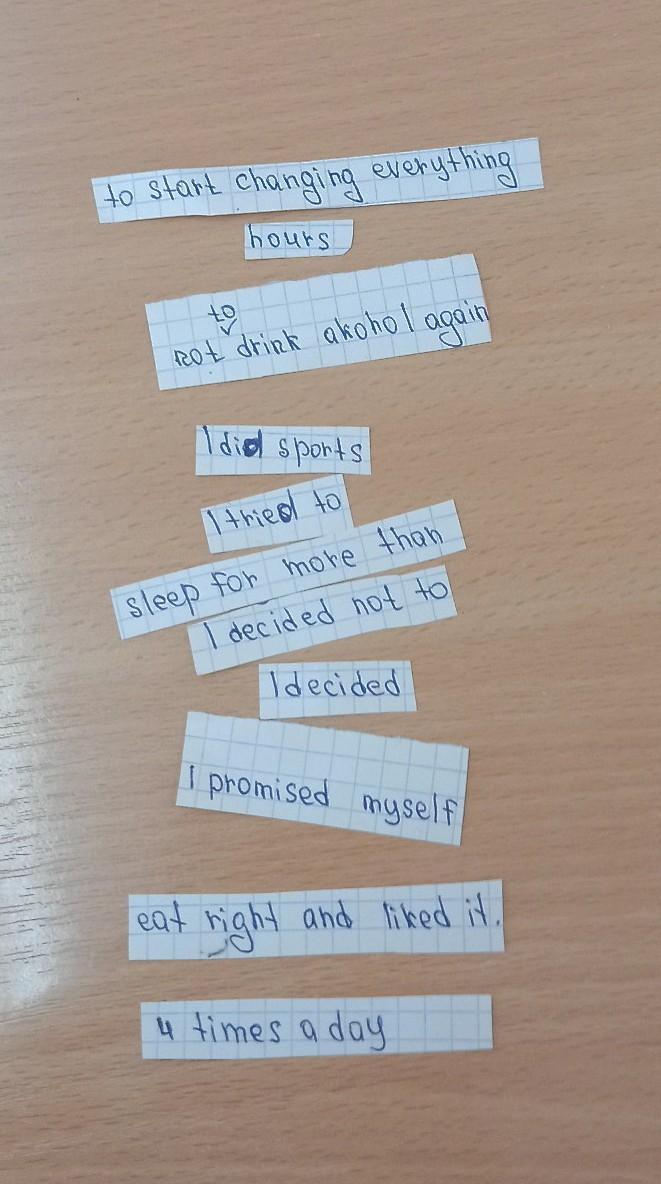 to start changing everything
hours
to
not drink akohol again
I did sports
I tried to
sleep for more than
I decided not to
I decided
I promised myself
eat right and liked it.
4 times a day